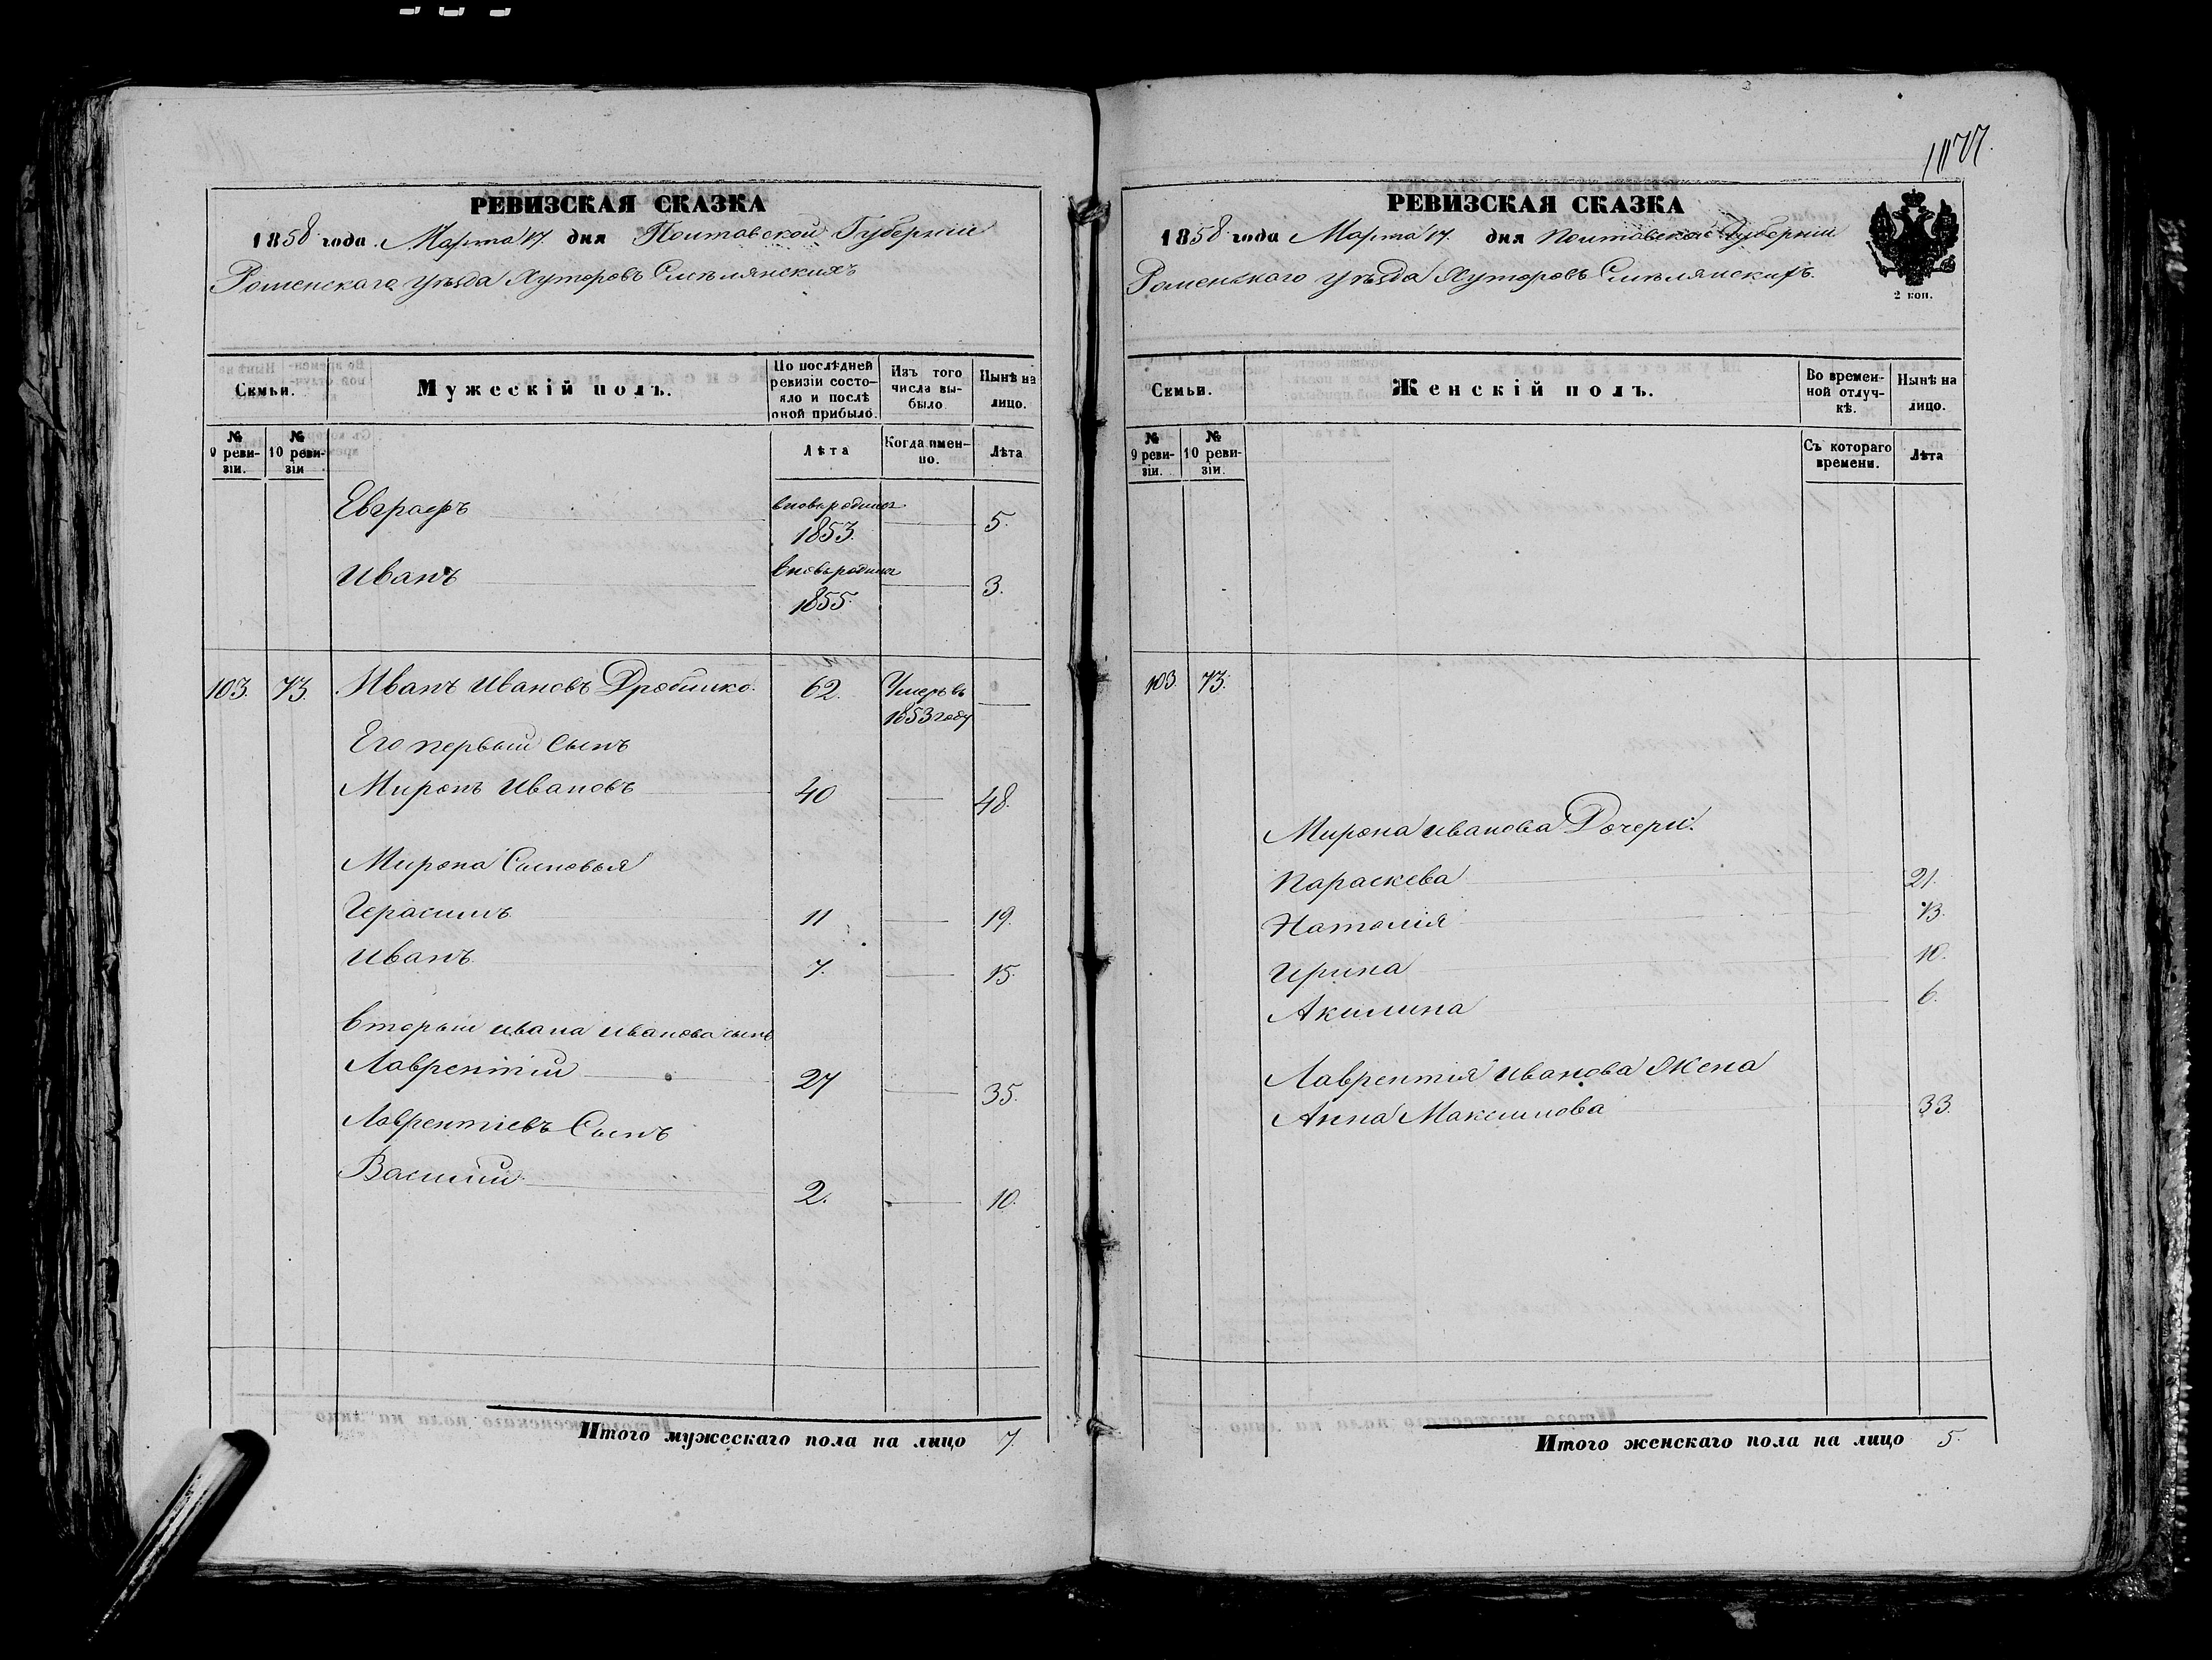 1077.
РЕВИЗСКАЯ СКАЗКА
1858 года Марта 17. дня Полтавской Губерніи
Роменскаго уѣзда Хуторовъ Смѣлянскихъ
Семьи.
Мужескій полъ.
По послѣдней ревизіи состояло и послѣ оной прибыло.
Изъ того числа выбыло
Нынѣ на лицо.
№ 9 ревизіи.
№ 10 ревизіи
Лѣта
Когда именно.
Лѣта
Евграфъ вновь родился 1853. 5.
Иванъ вновь родился 1855. 3.
103. 73. Иванъ Ивановъ 62. Умеръ въ 1853 году
Его первый Сынъ
Миронъ Ивановъ 40 48.
Мирона Сыновья
Герасимъ 11 19.
Иванъ 7. 15.
Вторый Ивана Иванова сынъ
Лаврентій 27 35.
Лаврентіевъ Сынъ
Василій 2. 10.
Итого мужескаго пола на лицо 7.
РЕВИЗСКАЯ СКАЗКА
1858 года Марта 17. дня Полтавской Губерніи
Роменскаго уѣзда Хуторовъ Смѣлянскихъ.
2 коп.
Семьи.
Женскій полъ.
Во временной отлучкѣ.
Нынѣ на лицо.
№ 9 ревизіи.
№ 10 ревизіи.
Съ котораго времени.
Лѣта
103. 73.
Мирона Иванова Дочери.
Параскева 21.
Наталія 13.
Ирина 10.
Акилина 6.
Лаврентія Иванова Жена
Анна Максимова 33.
Итого женскаго пола на лицо 5.